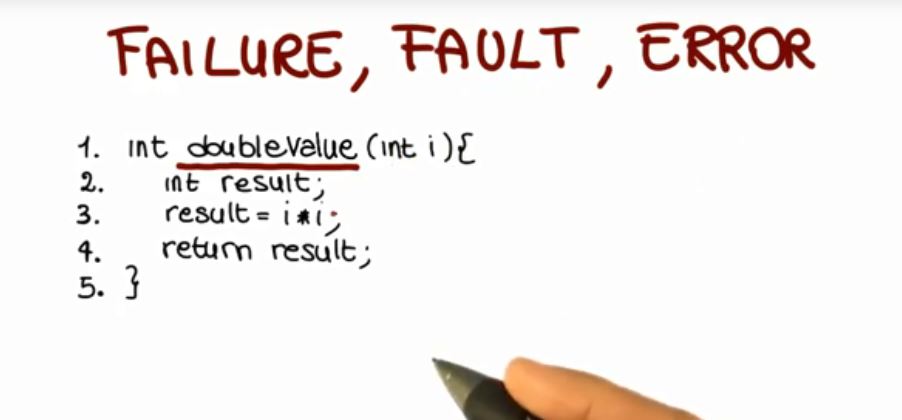 FAILURE, FAULT, ERROR
1. int doubleValue (int i){
2. int result;
3. result = i*i;
4. return result;
5. }